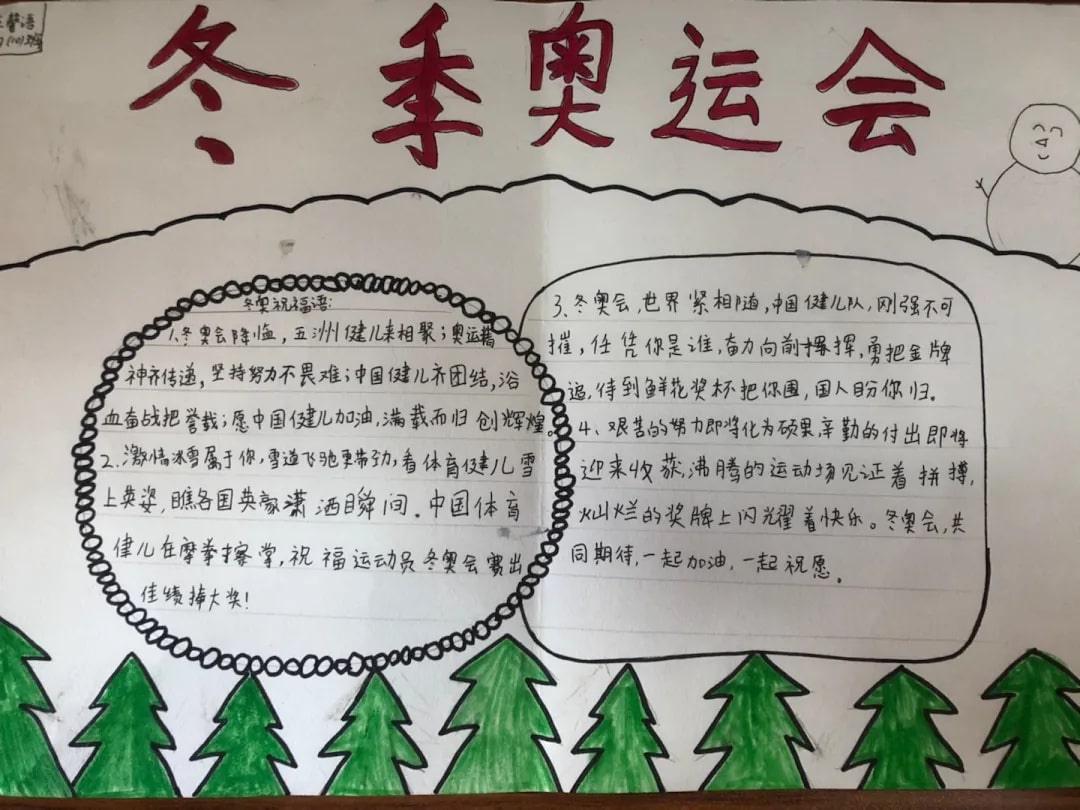 馨语
(10)班
冬季奥运会
冬奥祝福语:
1.冬奥会降临,五洲健儿来相聚;奥运精
神齐传递,坚持努力不畏难;中国健儿齐团结,浴
血奋战把誉载;愿中国健儿加油,满载而归创辉煌。
2.激情冰雪属于你,雪道飞驰更带劲,看体育健儿雪
上英姿,瞧各国英豪潇洒瞬间。中国体育
健儿在摩拳擦掌,祝福运动员冬奥会赛出
佳绩捧大奖!
3、冬奥会,世界紧相随,中国健儿队,刚强不可
摧,任凭你是谁,奋力向前挥,勇把金牌
追,待到鲜花奖杯把你围,国人盼你归。
4、艰苦的努力即将化为硕果,辛勤的付出即将
迎来收获,沸腾的运动场见证着拼搏,
灿烂的奖牌上闪耀着快乐。冬奥会,共
同期待,一起加油,一起祝愿。